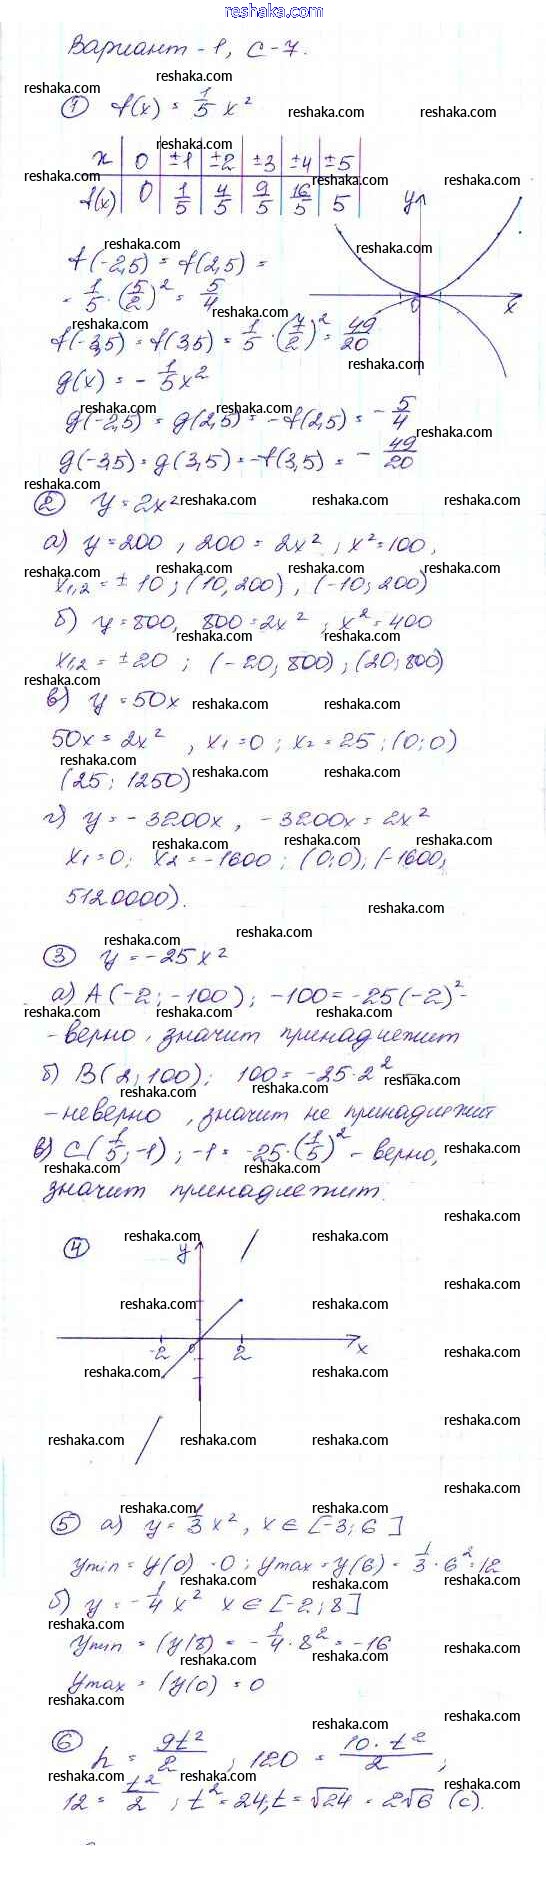 www.reshaka.com
Вариант - 1, С-7.
① f(x) = 1/5 x²
x | 0 | ±1 | ±2 | ±3 | ±4 | ±5
f(x) | 0 | 1/5 | 4/5 | 9/5 | 16/5 | 5
y
0
x
f(-2,5) = f(2,5) =
= 1/5 · (5/2)² = 5/4
f(-3,5) = f(3,5) = 1/5 · (7/2)² = 49/20
g(x) = - 1/5 x²
g(-2,5) = g(2,5) = -f(2,5) = - 5/4
g(-3,5) = g(3,5) = -f(3,5) = - 49/20
② y = 2x²
а) y = 200, 200 = 2x²; x² = 100,
x1,2 = ± 10; (10, 200), (-10; 200)
б) y = 800, 800 = 2x²; x² = 400
x1,2 = ±20; (-20; 800); (20; 800)
в) y = 50x
50x = 2x², x1 = 0; x2 = 25; (0; 0)
(25; 1250)
г) y = - 3200x, - 3200x = 2x²
x1 = 0; x2 = -1600; (0; 0); (-1600;
5120000).
③ y = -25x²
а) A(-2; -100); -100 = -25(-2)² -
- верно, значит принадлежит
б) B(2; 100); 100 = -25·2² -
- неверно, значит не принадлежит
в) C(1/5; -1); -1 = -25·(1/5)² - верно,
значит принадлежит.
④ y
-2 0 2 x
⑤ а) y = 1/3 x², x ∈ [-3; 6]
ymin = y(0) = 0; ymax = y(6) = 1/3 · 6² = 12
б) y = - 1/4 x² x ∈ [-2; 8]
ymin = (y(8) = - 1/4 · 8² = -16
ymax = (y(0) = 0
⑥ h = gt²/2; 120 = 10·t²/2;
12 = t²/2; t² = 24; t = √24 = 2√6 (с).
reshaka.com